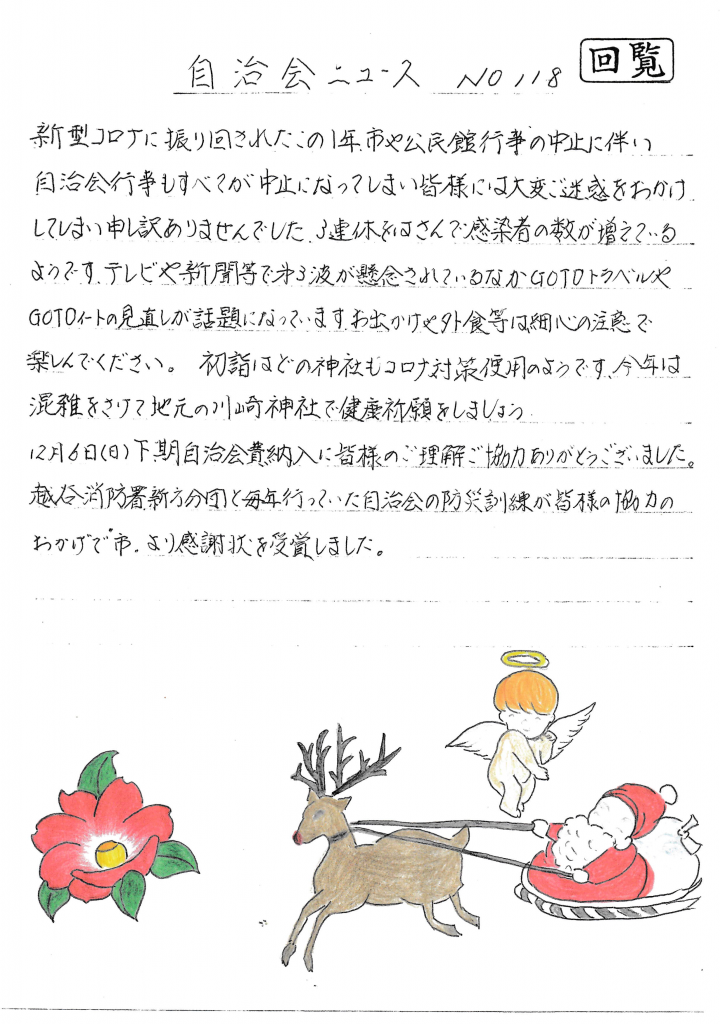 自治会ニュース NO118 回覧
新型コロナに振り回されたこの1年、市や公民館行事の中止に伴い
自治会行事もすべてが中止になってしまい皆様には大変ご迷惑をおかけ
してしまい申し訳ありませんでした、3連休をはさんで感染者の数が増えている
ようです、テレビや新聞等で第3波が懸念されているなかGOTOトラベルや
GOTOイートの見直しが話題になっています、お出かけや外食等は細心の注意で
楽しんでください。 初詣はどの神社もコロナ対策使用のようです、今年は
混雑をさけて地元の川崎神社で健康祈願をしましょう
12月6日(日)下期自治会費納入に皆様のご理解ご協力ありがとうございました。
越谷消防署新方分団と毎年行っていた自治会の防災訓練が皆様の協力の
おかげで市.より感謝状を受賞しました。